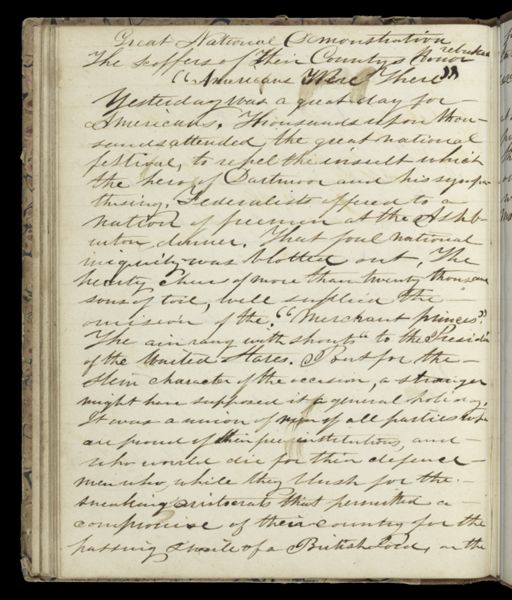 Great National Demonstration
The Scoffers of Their Countrys Honor rebuked
"Americans Were There"
Yesterday was a great day for
Americans. Thousands upon thou-
sands attended the great national
festival, to repel the insult which
the hero of Dartmoor and his sympa-
thising Federalists offered to a
nation of freemen at the Ashb-
urton dinner. That foul national
iniquity was blotted out. The
hearty cheers of more than twenty thousand
sons of toil, well supplied the
omission of the "Merchant princes".
The air rang with shouts to the President
of the United States. But for the
stern character of the occasion, a stranger
might have supposed it a general holiday.
It was a union of men of all parties who
are proud of their free institutions, and
who would die for their defence
men who, while they blush for the
sneaking aristocrats that permitted a
compromise of their country for the
passing smile of a British Lord, on the